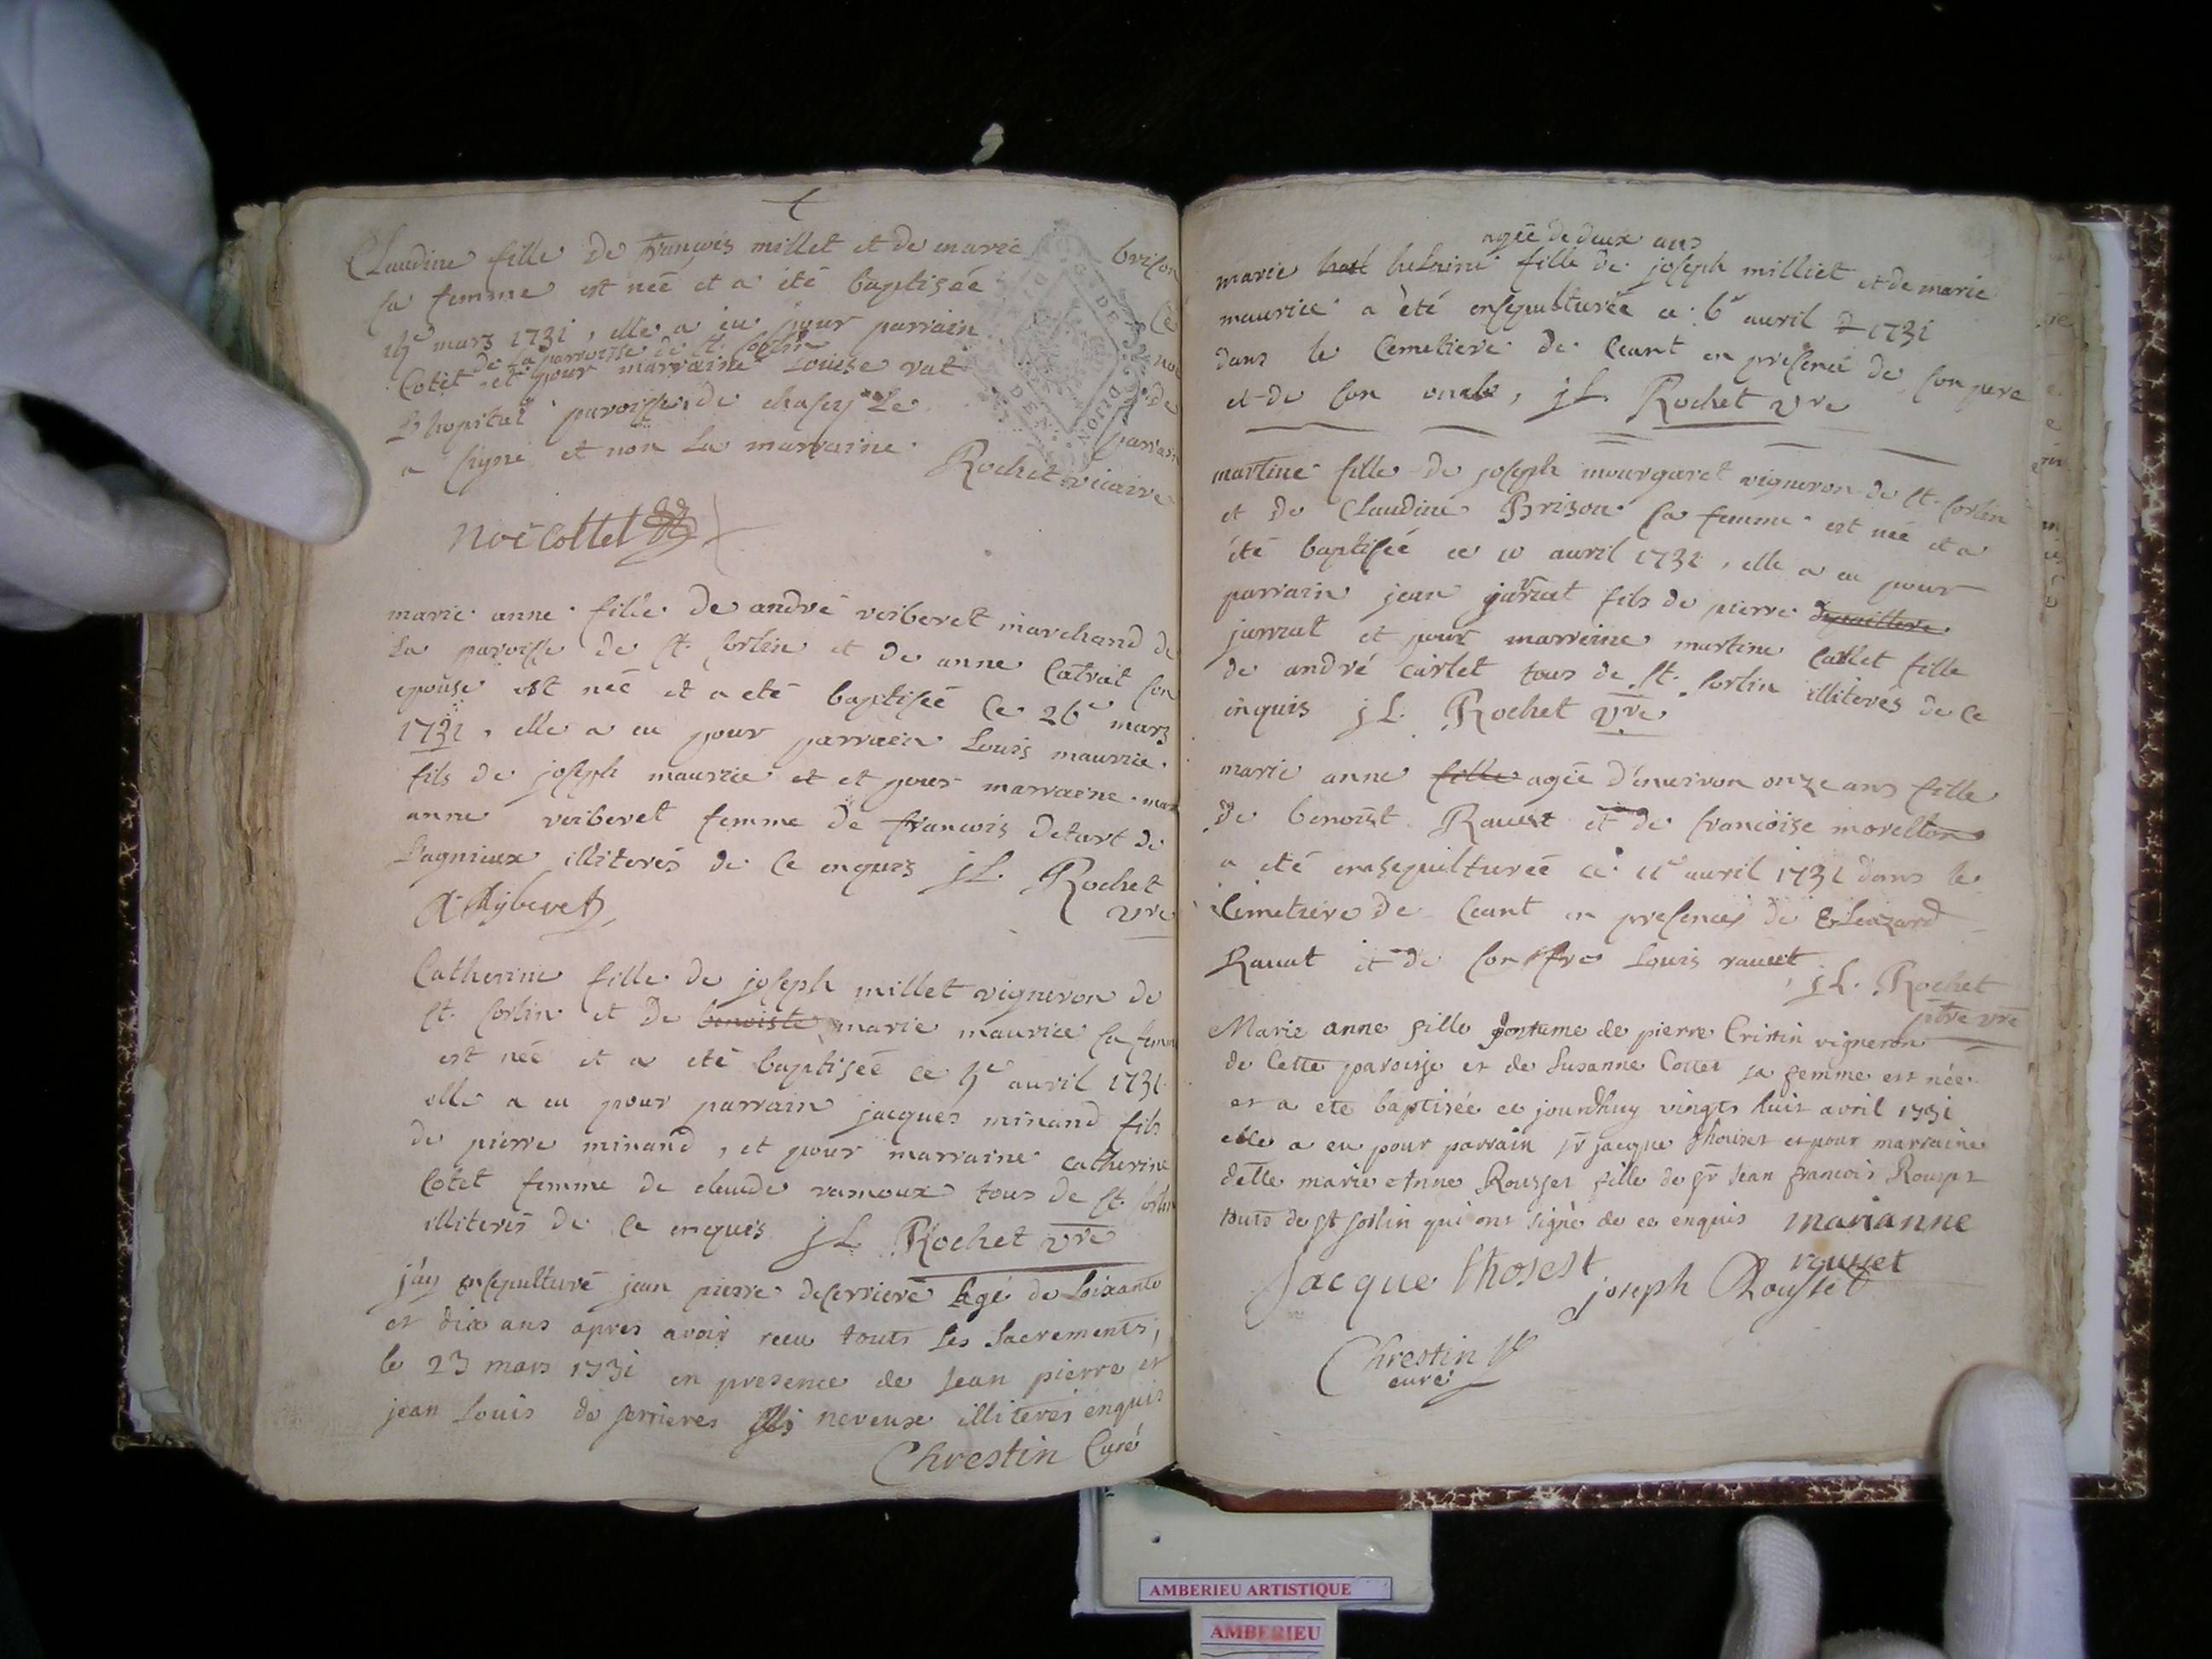 Claudine fille de françois millet et de marie brison
sa femme est née et a été baptisée ce
mars 1731, elle a eu pour parrain noé
de la parroisse de st. sorlin
Cotet et pour marraine Louise vat de
L'hopital paroisse de chasey Le parrain
a signé et non La marraine. Rochet vicaire
noe cottet
marie anne fille de andré veiberet marchand de
La paroisse de st. sorlin et de anne Catrat son
epouse est née et a eté baptisée ce 26e mars
1731, elle a eu pour parrain Louis maurice
fils de joseph maurice et et pour marraine mar
anne veiberet femme de francois detart de
Lagnieux illiterés de ce enquis jL. Rochet
vre
Catherine fille de joseph millet vigneron de
st. sorlin et de benoiste marie maurice sa femme
est née et a eté baptisée ce 4e auril 1731
elle a eu pour parrain jacques minand fils
de pierre minand, et pour marraine catherine
Cotet femme de claude ramoux tous de st. sorlin
illiterés de ce enquis jL. Rochet vre
j'ay ensepulturé jean pierre deserriere agé de soixante
et dix ans apres avoir receu touts les sacrements,
le 23 mars 1731 en presence de jean pierre et
jean Louis de serrieres neveux illiterés enquis
Chrestin Curé
agée de deux ans
marie fille de joseph milliet et de marie
maurice a été ensepulturée ce 6e auril 1731
dans le Cemetiere de Ceant en presence de son pere
et de son oncle, jL. Rochet vre
martine fille de joseph mourgaret vigneron de st. sorlin
et de Claudine Brison sa femme est née et a
été baptisée ce 10 auril 1731, elle a eu pour
parrain jean jarrat fils de pierre
jarrat et pour marreine martine Carlet fille
de andré carlet tous de st. sorlin illiterés de ce
enquis jL. Rochet vre
marie anne fille agée d'environ onze ans fille
de benoist Rauat et de francoise morellon
a eté ensepulturée ce 11e auril 1731 dans le
Cimetiere de Ceant en presences de Eleazard
Rauat et de son frere Louis rauat
jL. Rochet
ptre vre
Marie anne fille postume de pierre Cristin vigneron
de Cette paroisse et de Susanne Cottet sa femme est née
et a eté baptisée ce jourdhuy vingts huit avril 1731
elle a eu pour parrain sr jacque Thoizet et pour marraine
delle marie Anne Rousset fille de sr jean francois Rousset
touts de st sorlin qui ont signé de ce enquis marianne
rousset
Jacque thosest joseph Rousset
Chrestin
curé
AMBERIEU ARTISTIQUE
AMBERIEU